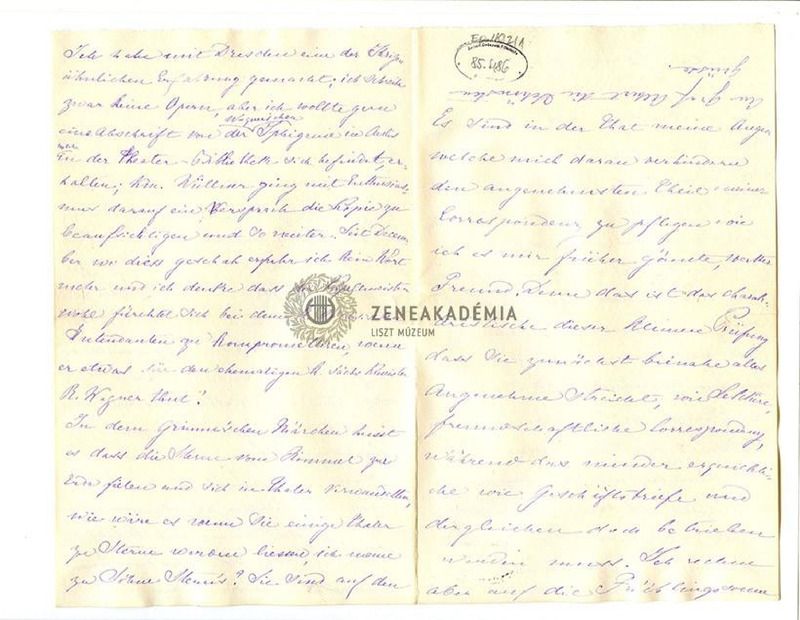 Ich habe mit Dresden eine der Ihrigen
ähnlichen Erfahrung gemacht, ich schreibe
zwar keine Opern, aber ich wollte gern
Wagnerischen
eine Abschrift von der Iphigenie in Aulis
in der Theater-Bibliothek sich befindet, er-
halten; Wüllner ging mit Enthusias-
mus darauf ein versprach die Copie zu
beaufsichtigen und so weiter. Seit Decem-
ber wo diess geschah erfuhr ich kein Wort
mehr und ich denke dass
wohl fürchtet sich bei dem
Intendanten zu kompromettiren, wenn
er etwas für den ehemaligen k. sächs
R. Wagner thut?
In dem Grimm'schen Märchen heisst
es dass die Sterne vom Himmel zur
Erde fielen und sich in Thaler verwandelten,
wie wäre es wenn Sie einige Thaler
zu Sterne werden liessen, ich meine
zu Sterne? Sie sind auf den
85.486
Grüsse.
An Graf Albert die schönsten
Es sind in der That meine Augen
welche mich daran verhindern
den angenehmsten Theil meiner
Correspondenz zu pflegen wie
ich es mir früher gönnte, werther
Freund. Denn das ist das charak-
teristische dieser kleinen Prüfung
dass sie zunächst beinahe alles
Angenehme streicht, wie Lektüre,
freundschaftliche Correspondenz,
während das minder erquickli-
che wie Geschäftsbriefe und
dergleichen doch betrieben
werden muss. Ich rechne
aber auf die Frühlingssonne
ZENEAKADÉMIA
LISZT MÚZEUM